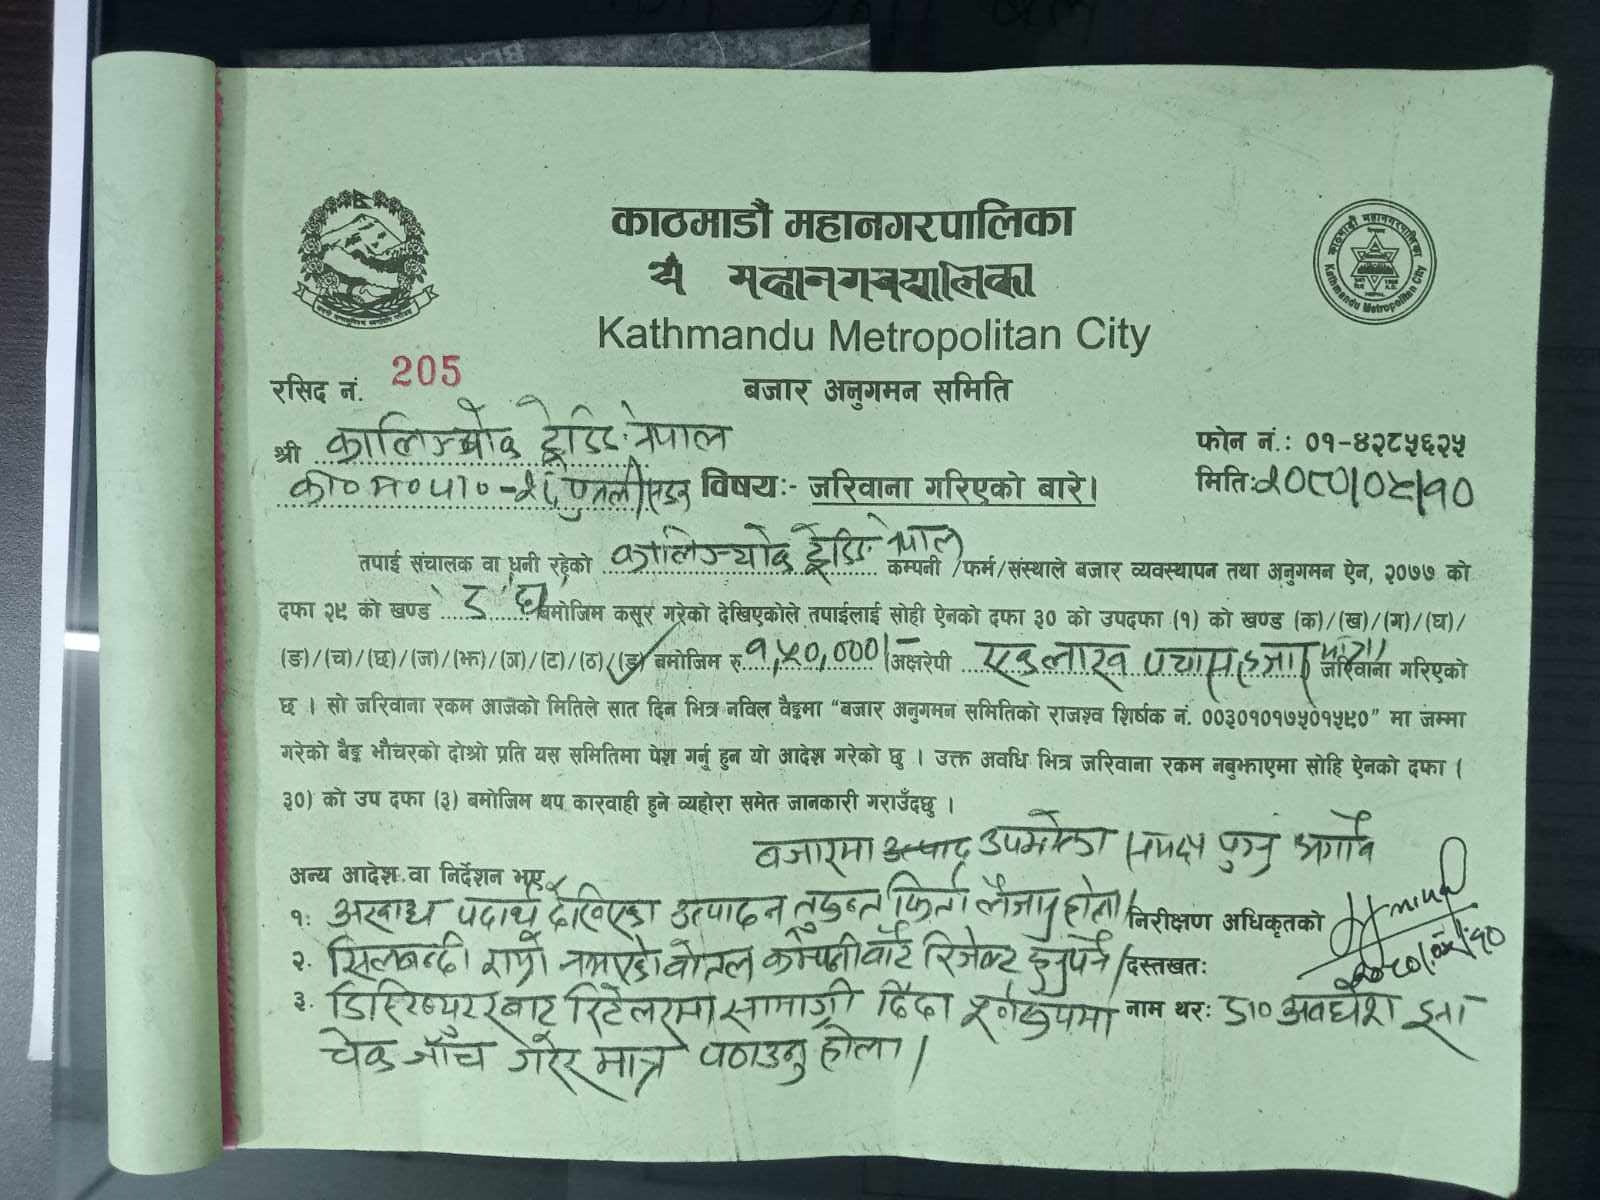 काठमाडौं महानगरपालिका
यें महानगरपालिका
Kathmandu Metropolitan City
काठमाडौं महानगरपालिका
Kathmandu Metropolitan City
रसिद नं. 205
बजार अनुगमन समिति
श्री कालिञ्चोक ट्रेडिङ नेपाल
फोन नं.: ०१-४२८५६२५
का०म०पा०-२८ पुतली सडक विषय:- जरिवाना गरिएको बारे।
मिति: २०८०/०५/१०
तपाई संचालक वा धनी रहेको कालिञ्चोक ट्रेडिङ नेपाल कम्पनी /फर्म/संस्थाले बजार व्यवस्थापन तथा अनुगमन ऐन, २०७७ को
दफा २९ को खण्ड ङ घ बमोजिम कसूर गरेको देखिएकोले तपाईलाई सोही ऐनको दफा ३० को उपदफा (१) को खण्ड (क)/(ख)/(ग)/(घ)/
(ङ)/(च)/(छ)/(ज)/(झ)/(ञ)/(ट)/(ठ)/(ड) बमोजिम रु. १,५०,०००/- अक्षरेपी एकलाख पचास हजार मात्र। जरिवाना गरिएको
छ । सो जरिवाना रकम आजको मितिले सात दिन भित्र नविल वैङ्कमा "बजार अनुगमन समितिको राजश्व शिर्षक नं. ००३०१०१७५०१५९०" मा जम्मा
गरेको बैङ्क भौचरको दोश्रो प्रति यस समितिमा पेश गर्नु हुन यो आदेश गरेको छु । उक्त अवधि भित्र जरिवाना रकम नबुझाएमा सोहि ऐनको दफा (
३०) को उप दफा (३) बमोजिम थप कारवाही हुने व्यहोरा समेत जानकारी गराउँदछु ।
बजारमा उत्पाद उपभोक्ता समक्ष पुग्नु अगावै
अन्य आदेश वा निर्देशन भए
१. अखाद्य पदार्थ देखिएका उत्पादन तुरुन्त फिर्ता लैजानु होला।
निरीक्षण अधिकृतको
२. सिलबन्दी राम्रो नभएको बोतल कम्पनीबाटै रिजेक्ट हुनुपर्ने।
दस्तखत:
२०८०/०५/१०
३. डिस्ट्रिब्युटरबाट रिटेलरमा सामाग्री दिंदा
नाम थर: डा० अवधेश झा
चेक जाँच गरेर मात्र पठाउनु होला।